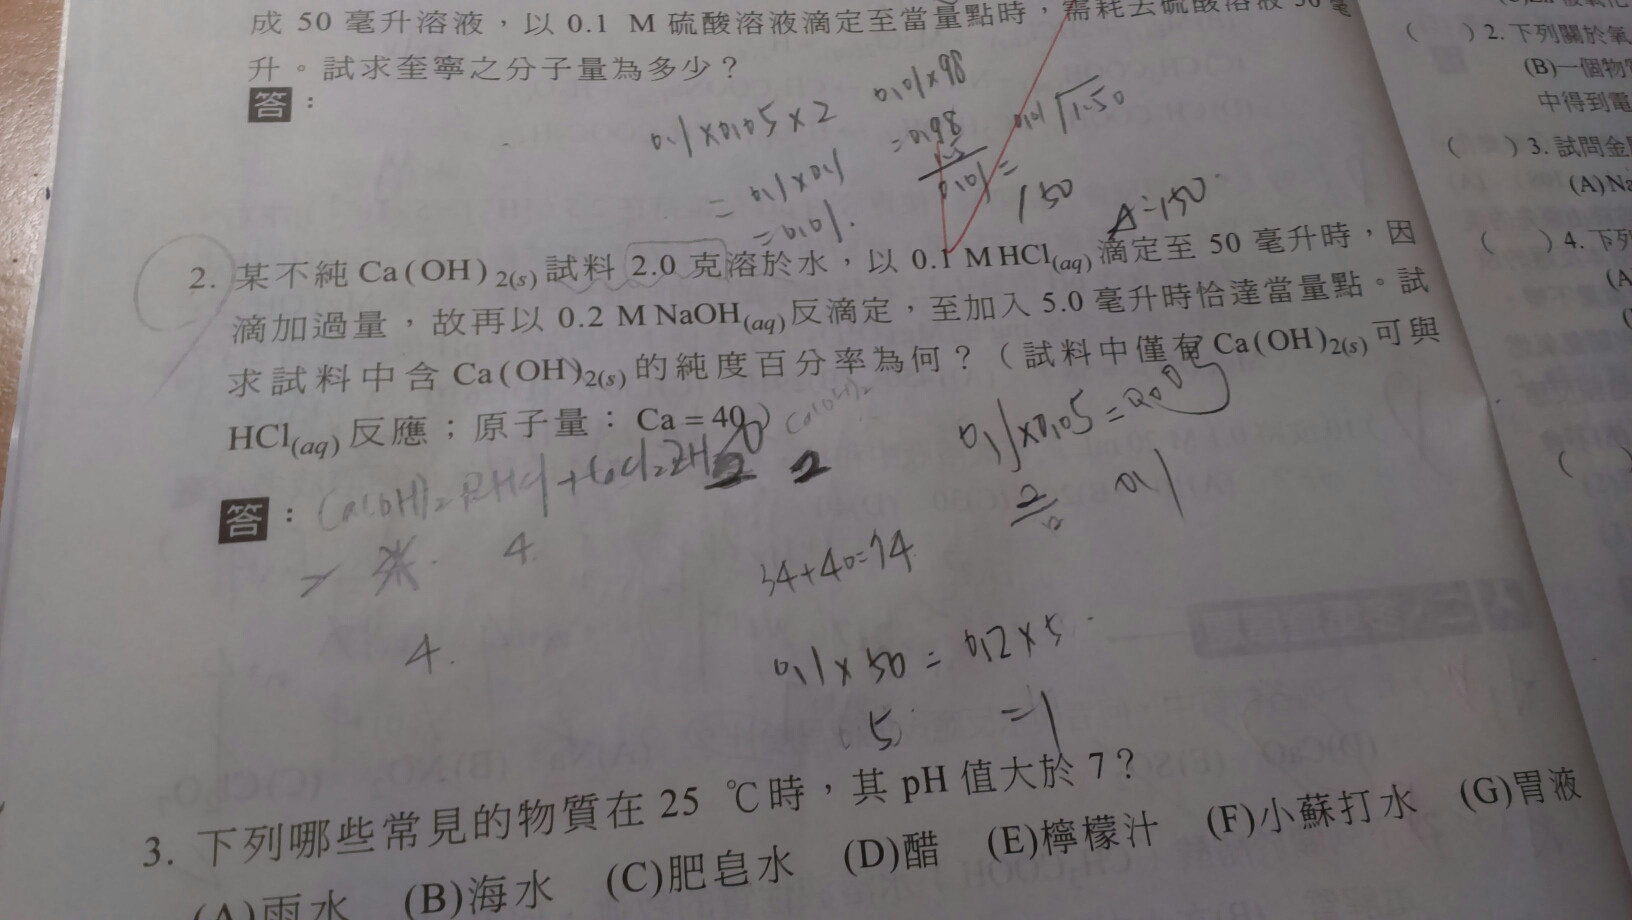 成 50 毫升溶液，以 0.1 M 硫酸溶液滴定至當量點時，需耗去硫酸溶液 50 毫
升。試求奎寧之分子量為多少？
答：
0.1×0.05×2
=0.1×0.1
=0.01
0.01×98
=0.98
150
A=150
2. 某不純 Ca(OH)2(s) 試料 2.0 克溶於水，以 0.1 M HCl(aq) 滴定至 50 毫升時，因
滴加過量，故再以 0.2 M NaOH(aq) 反滴定，至加入 5.0 毫升時恰達當量點。試
求試料中含 Ca(OH)2(s) 的純度百分率為何？（試料中僅有 Ca(OH)2(s) 可與
HCl(aq) 反應；原子量：Ca = 40）
Ca(OH)2
0.1×0.05=
答：
4
34+40=74
4.
0.1×50=0.2×5
5 =1
3. 下列哪些常見的物質在 25 ℃時，其 pH 值大於 7？
(A)雨水 (B)海水 (C)肥皂水 (D)醋 (E)檸檬汁 (F)小蘇打水 (G)胃液
( ) 2. 下列關於氧
(B)一個物
中得到電
( ) 3. 試問金
(A)Na
( ) 4. 下列
(A
(